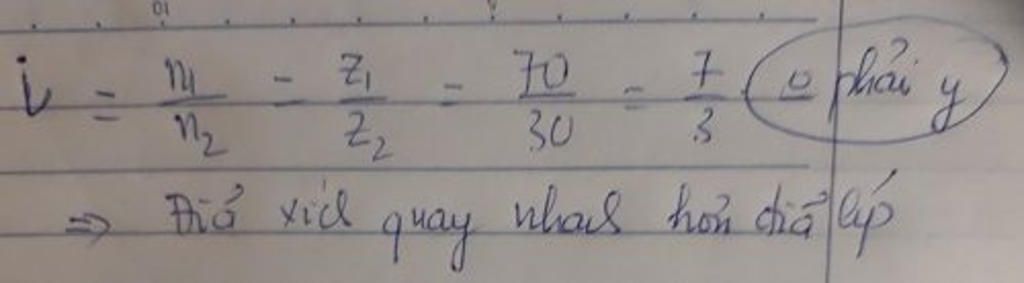 i = n1/n2 = z1/z2 = 70/30 = 7/3 o phải y
=> Đĩa xích quay nhanh hơn đĩa líp